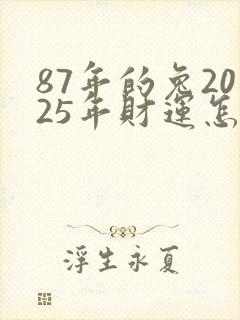 87年的兔20
25年財運怎
浮生永夏